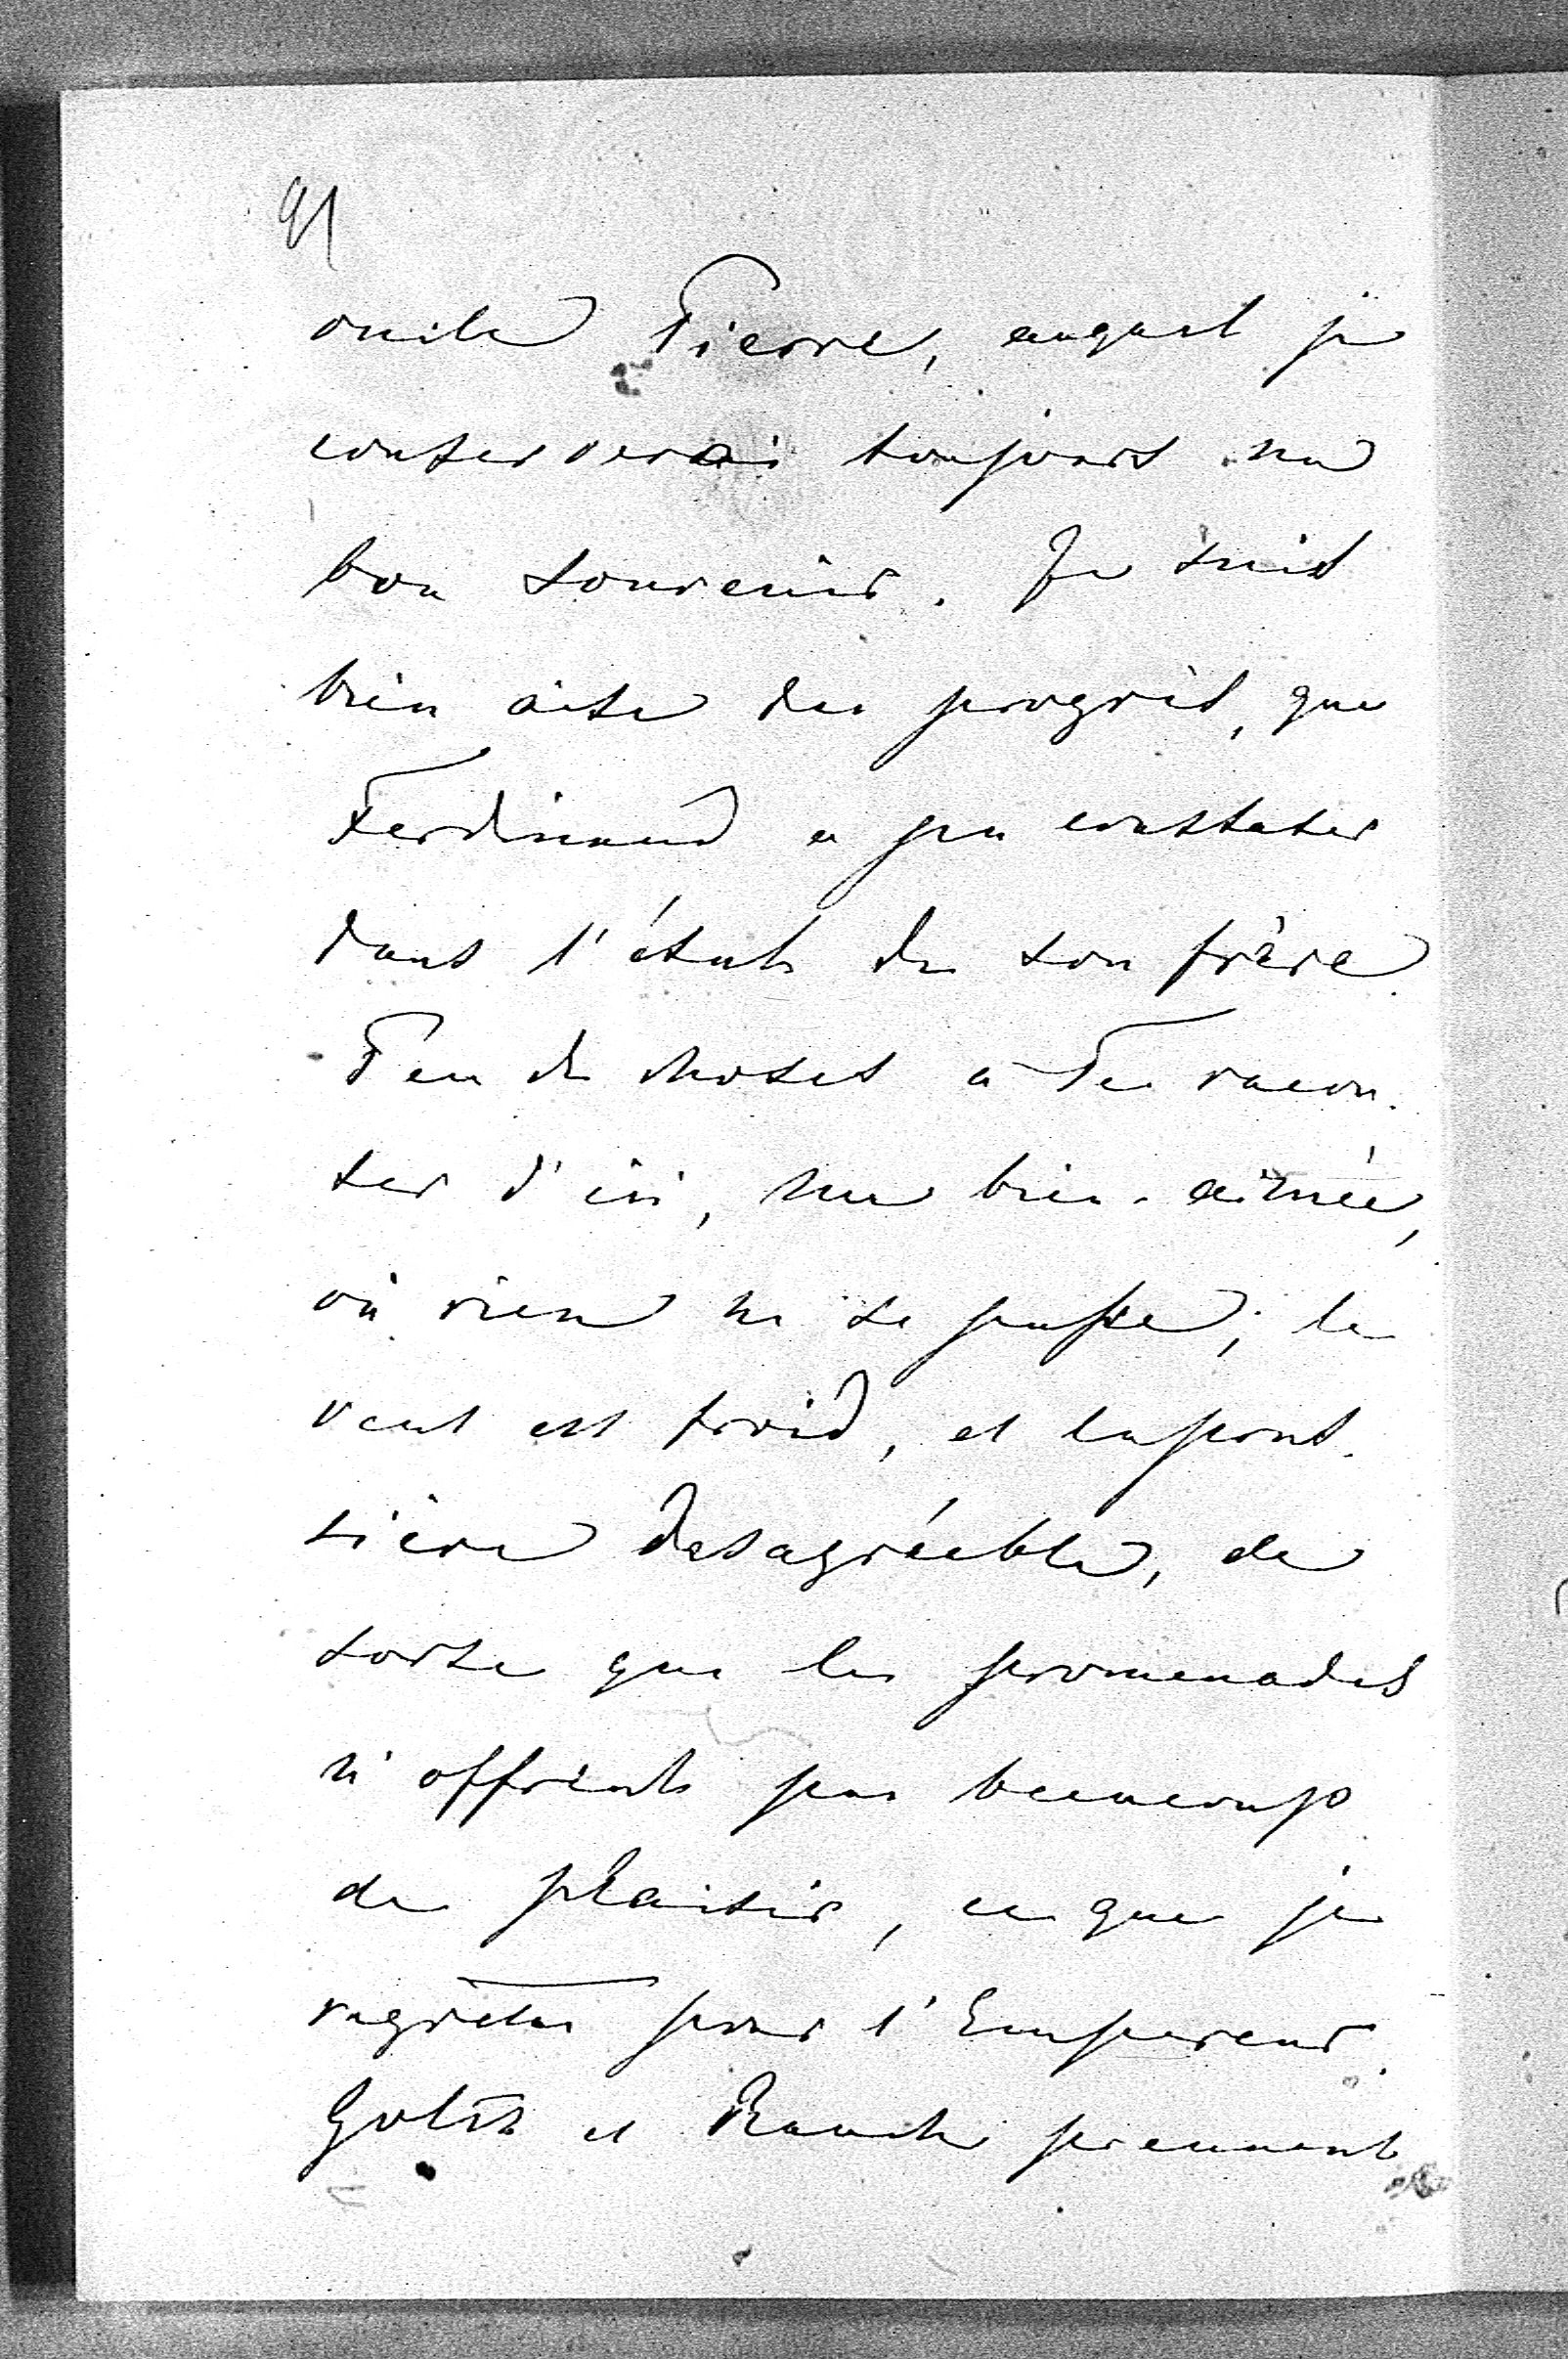 91
oncle Pierre, auquel je
conserverai toujours un
bon souvenir. Je suis
bien aise des progrès, que
Ferdinand a pu constater
dans l'état de son frère.
Peu de choses à Te racon-
ter d'ici, ma bien-aimée,
où rien ne se passe; le
vent est froid, et la pous-
sière desagréable, de
sorte que les promenades
n'offrent pas beaucoup
de plaisir, ce que je
regrette pour l'Empereur.
Goltz et Rauch prennent